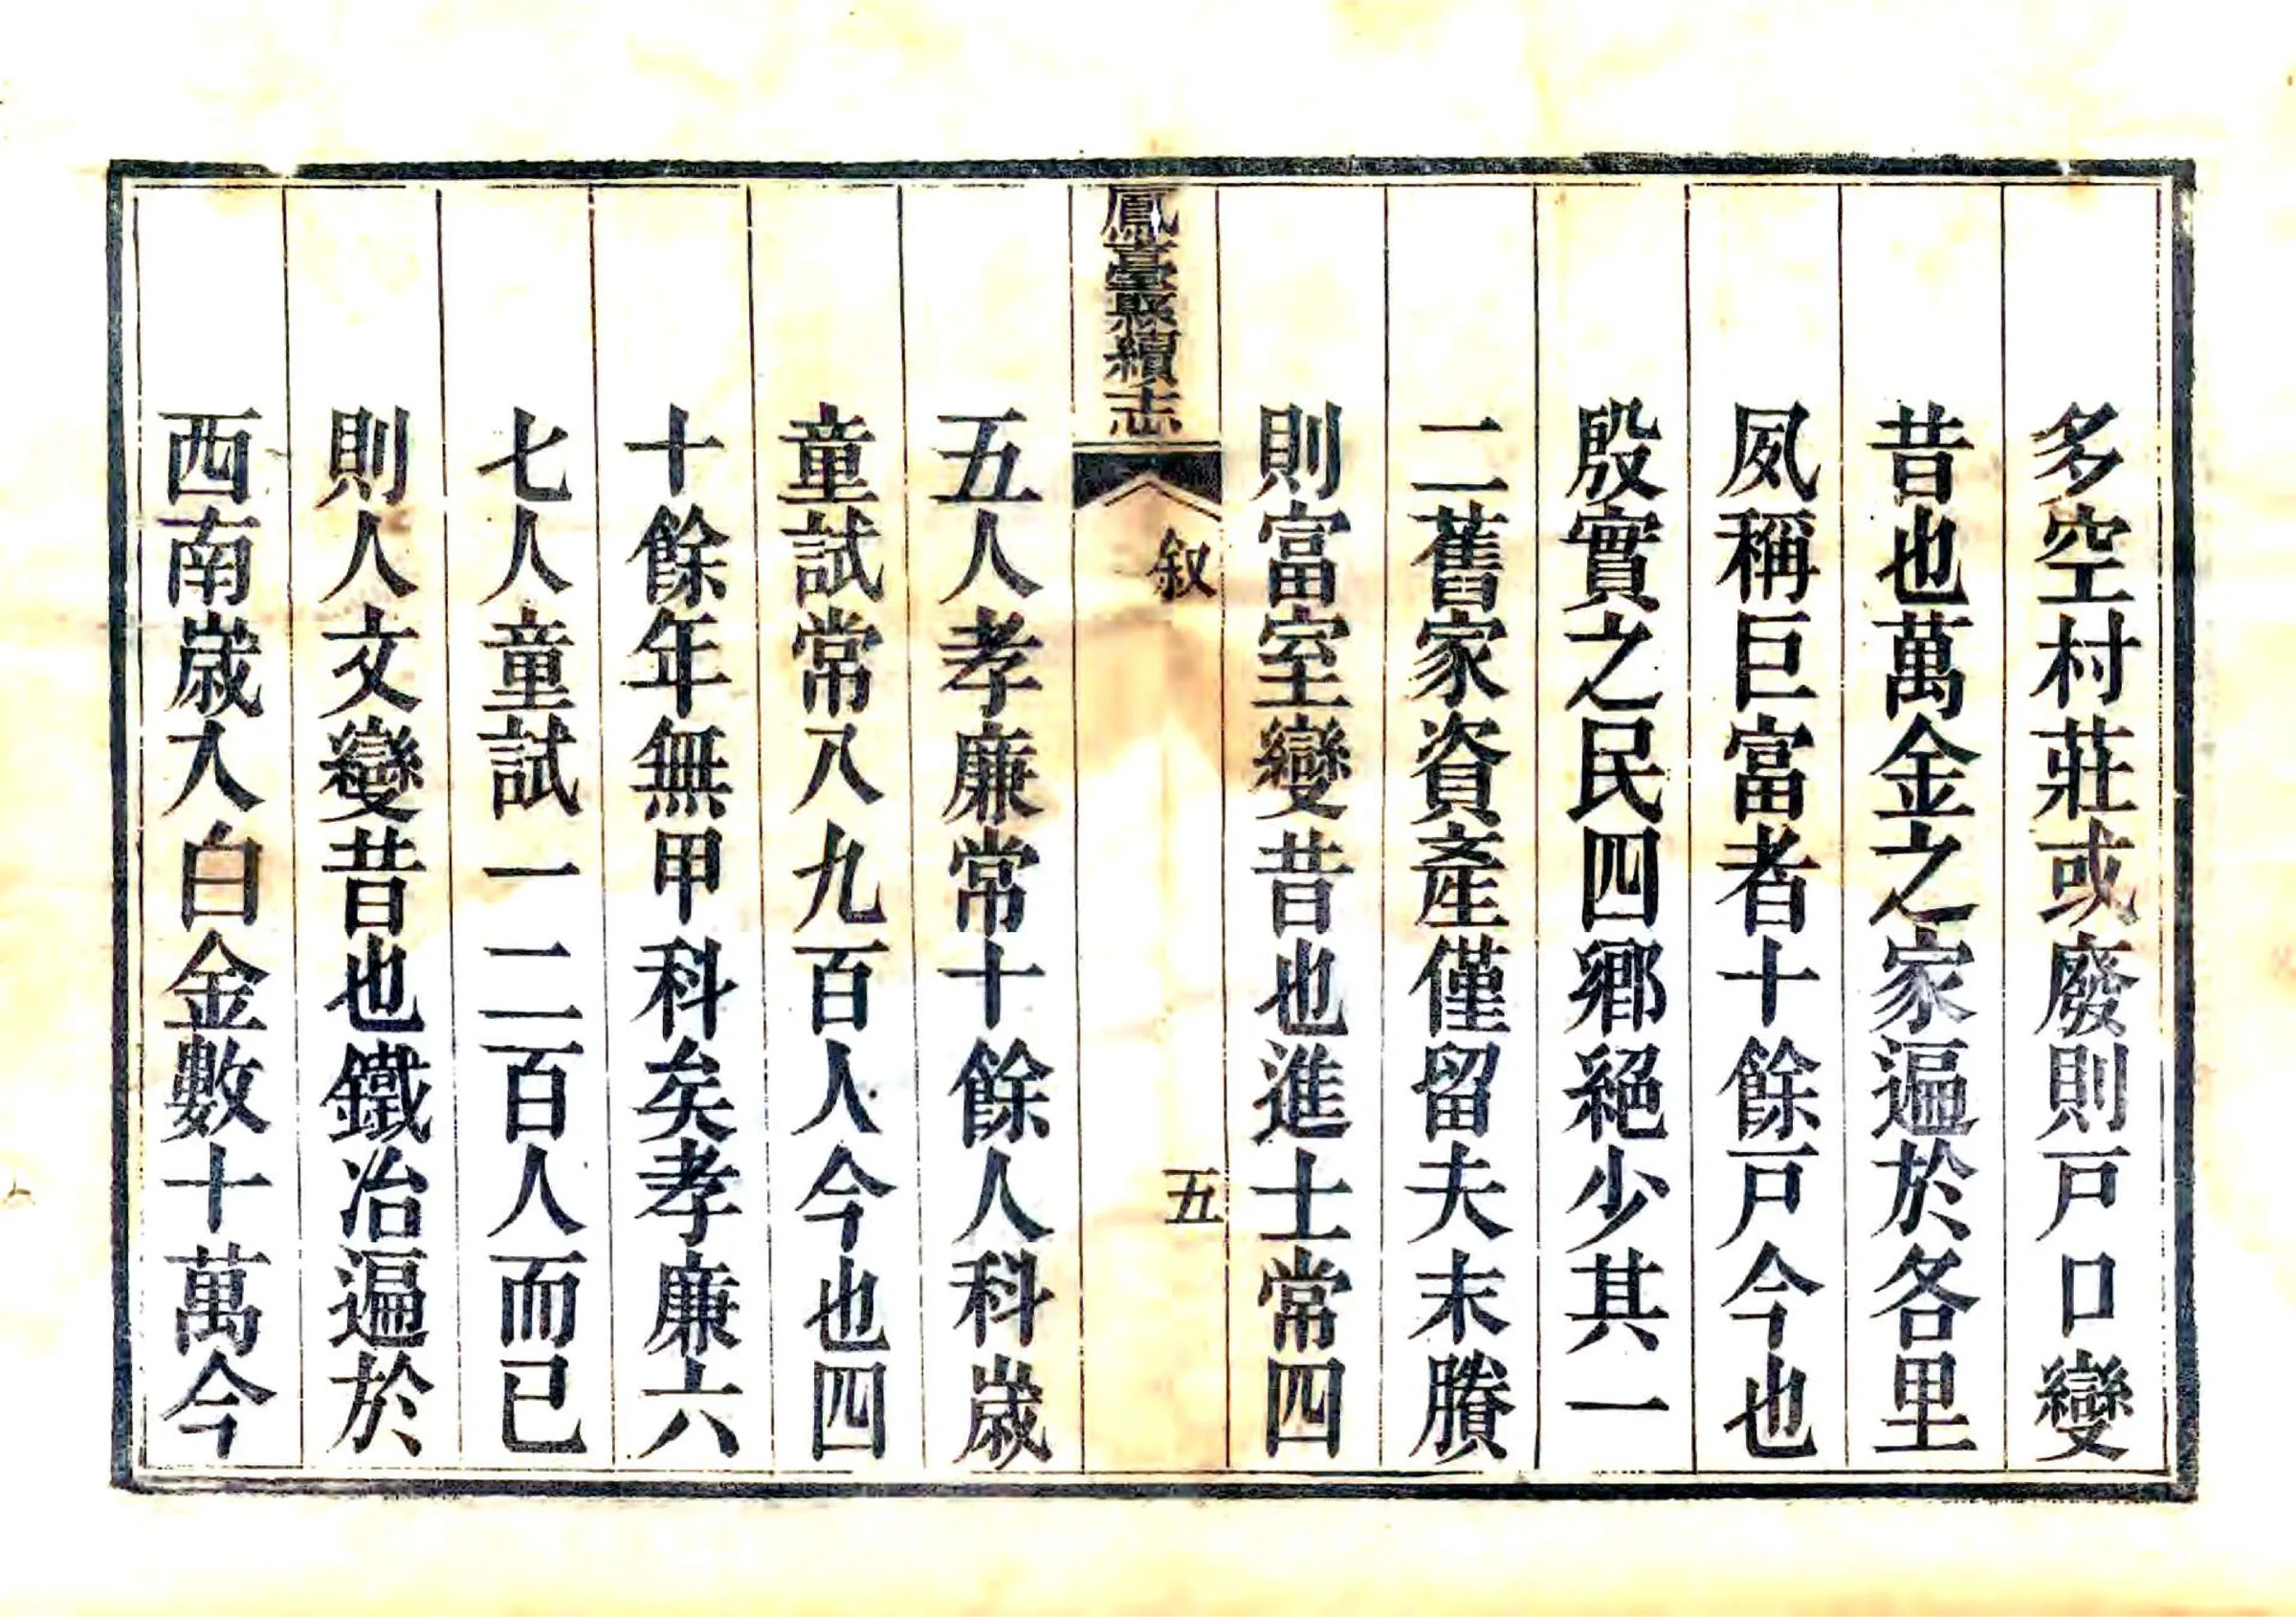 多空村莊或廢則戸口變
昔也萬金之家遍於各里
夙稱巨富者十餘戸今也
殷實之民四鄉絕少其一
二舊家資產僅留夫末賸
則富室變昔也進士常四
鳳臺縣續志
叙
五
五人孝廉常十餘人科歲
童試常八九百人今也四
十餘年無甲科矣孝廉六
七人童試一二百人而已
則人文變昔也鐵冶遍於
西南歲入白金數十萬今